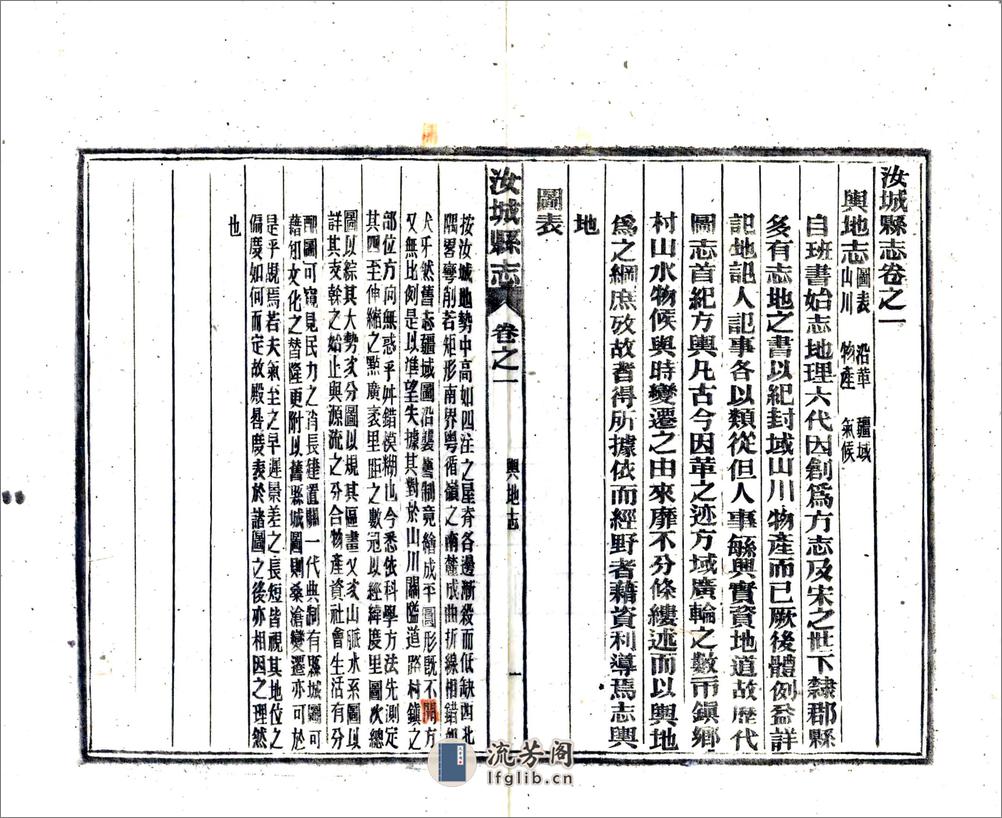 汝城縣志卷之一
輿地志 圖表 沿革 疆域 山川 物產 氣候
自班書始志地理六代因創爲方志及宋之世下隸郡縣
多有志地之書以紀封域山川物產而已厥後體例益詳
記地記人記事各以類從但人事繇興實資地道故歷代
圖志首紀方輿凡古今因革之迹方域廣輪之數市鎮鄉
村山水物候與時變遷之由來靡不分條縷述而以輿地
爲之綱庶攷故者得所據依而經野者藉資利導焉志輿
地
圖表
汝城縣志 卷之一 輿地志 一
按汝城地勢中高如四注之屋脊各邊漸殺而低缺西北
隅畧彎削若矩形南界粤循嶺之南麓成曲折線相錯如
犬牙然舊志疆域圖沿襲舊制竟繪成平圓形旣不開方
又無比例是以準望失據其對於山川關隘道路村鎮之
部位方向無惑乎舛錯模糊也今悉依科學方法先測定
其四至伸縮之點廣袤里距之數冠以經緯度里圖次總
圖以綜其大勢次分圖以規其區畫又次山脈水系圖以
詳其支幹之始止與源流之分合物產資社會生活有分
配圖可窺見民力之消長建置關一代典制有縣城圖可
藉知文化之替隆更附以舊縣城圖則桑滄變遷亦可於
是乎覘焉若夫氣至之早遲景差之長短皆視其地位之
偏度如何而定故殿晷度表於諸圖之後亦相因之理然
也
流芳阁
lfglib.cn